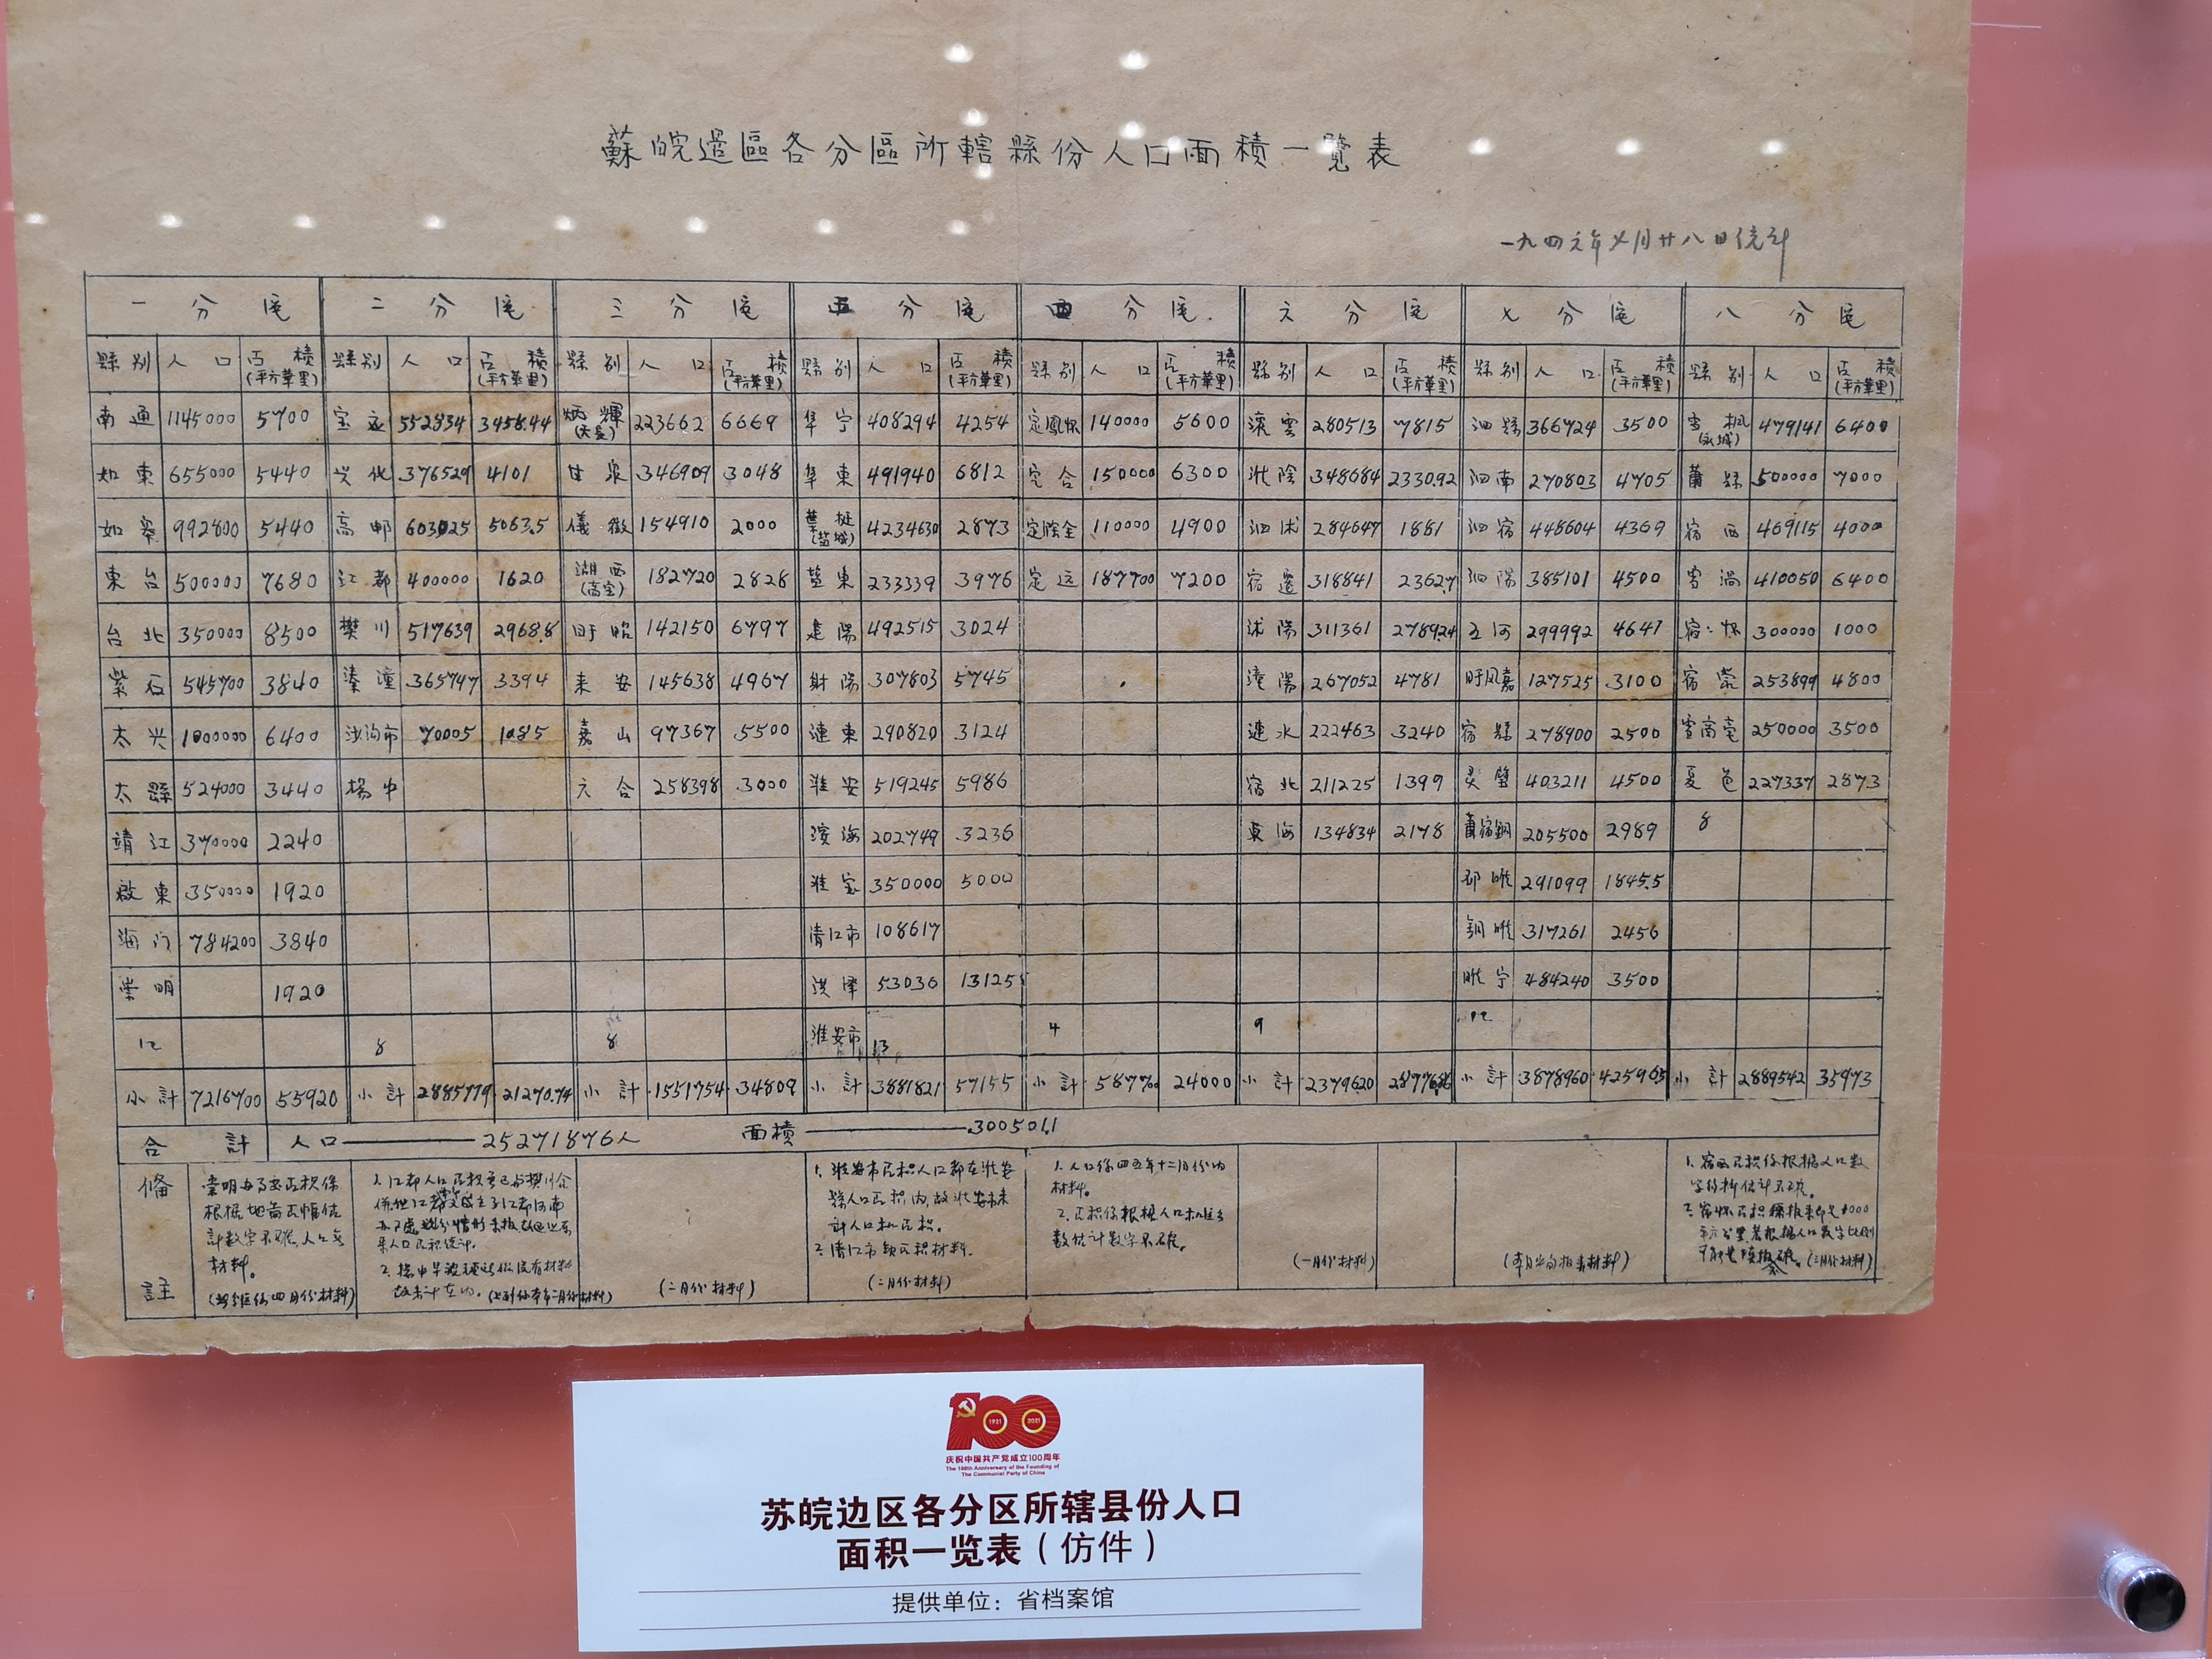 蘇皖邊區各分區所轄縣份人口面積一覽表
一九四六年 月廿八日统计
一分区 二分区 三分区 五分区 四分区 六分区 七分区 八分区
縣别 人口 面積(平方華里) 縣别 人口 面積(平方華里) 縣别 人口 面積(平方華里) 縣别 人口 面積(平方華里) 縣别 人口 面積(平方華里) 縣别 人口 面積(平方華里) 縣别 人口 面積(平方華里) 縣别 人口 面積(平方華里)
南通 1145000 5700 宝应 552834 3458.44 炳輝(天長) 223662 6669 阜宁 408294 4254 定鳳怀 140000 5600 灌雲 280513 7815 泗縣 366724 3500 雪楓(永城) 479141 6400
如東 655000 5440 兴化 376529 4101 甘泉 346909 3048 阜東 491940 6812 定合 150000 6300 淮陰 348684 2330.92 泗南 270803 4705 蕭縣 500000 7000
如皋 992800 5440 高邮 603025 5063.5 儀徵 154910 2000 葉挺(盐城) 4234630 2873 定滁全 110000 4900 泗沭 284647 1881 泗宿 448604 4369 宿西 469115 4000
東台 500000 7680 江都 400000 1620 湖西(高宝) 182720 2828 盐東 233339 3976 定远 187700 7200 宿遷 318841 2362.7 泗陽 385101 4500 雪涡 410050 6400
台北 350000 8500 樊川 517639 2968.8 盱眙 142150 6797 建陽 492515 3024 沭陽 311361 2789.24 五河 299992 4641 宿怀 300000 1000
紫石 545700 3840 溱潼 365747 3394 来安 145638 4967 射陽 307803 5745 潼陽 267052 4781 盱凤嘉 127525 3100 宿蒙 253899 4800
太兴 1000000 6400 沙沟市 70005 1085 嘉山 97367 5500 漣東 290820 3124 漣水 222463 3240 宿縣 278900 2500 雪商亳 250000 3500
太縣 524000 3440 楊中 六合 258398 3000 淮安 519245 5986 宿北 211225 1399 灵璧 403211 4500 夏邑 227337 2873
靖江 370000 2240 滨海 202749 3236 東海 134834 2178 蕭宿銅 205500 2989 8
啟東 350000 1920 淮宝 350000 5000 邳睢 291099 1845.5
海门 784200 3840 清江市 108617 銅睢 317261 2456
崇明 1920 洪泽 53036 13125 睢宁 484240 3500
12 8 8 淮安市 13 4 9 12
小計 7216700 55920 小計 2885779 21270.74 小計 1551754 34809 小計 3881821 57155 小計 587700 24000 小計 2379620 小計 3878960 42596.5 小計 2889542 35973
合計 人口 25271876人 面積 300501.1
備註
崇明 面积係
根据地商 估
計数字不確,人口无
材料。
( 係四月份材料)
2. 楊中 没有材料
故未計在内。
(二月份材料)
1. 淮安市面积人口都在淮安
縣人口面积内,故淮安市未
計人口和面积。
2. 清江市缺面积材料。
(二月份材料)
1. 人口係四五年十二月份的
材料。
2. 面积係根据人口
数估計数字不確。
(一月份材料)
(本月 材料)
1. 宿西面积係根据人口数
字 估計不確。
(二月份材料)
100
1921 2021
庆祝中国共产党成立100周年
The 100th Anniversary of the Founding of
The Communist Party of China
苏皖边区各分区所辖县份人口
面积一览表（仿件）
提供单位：省档案馆